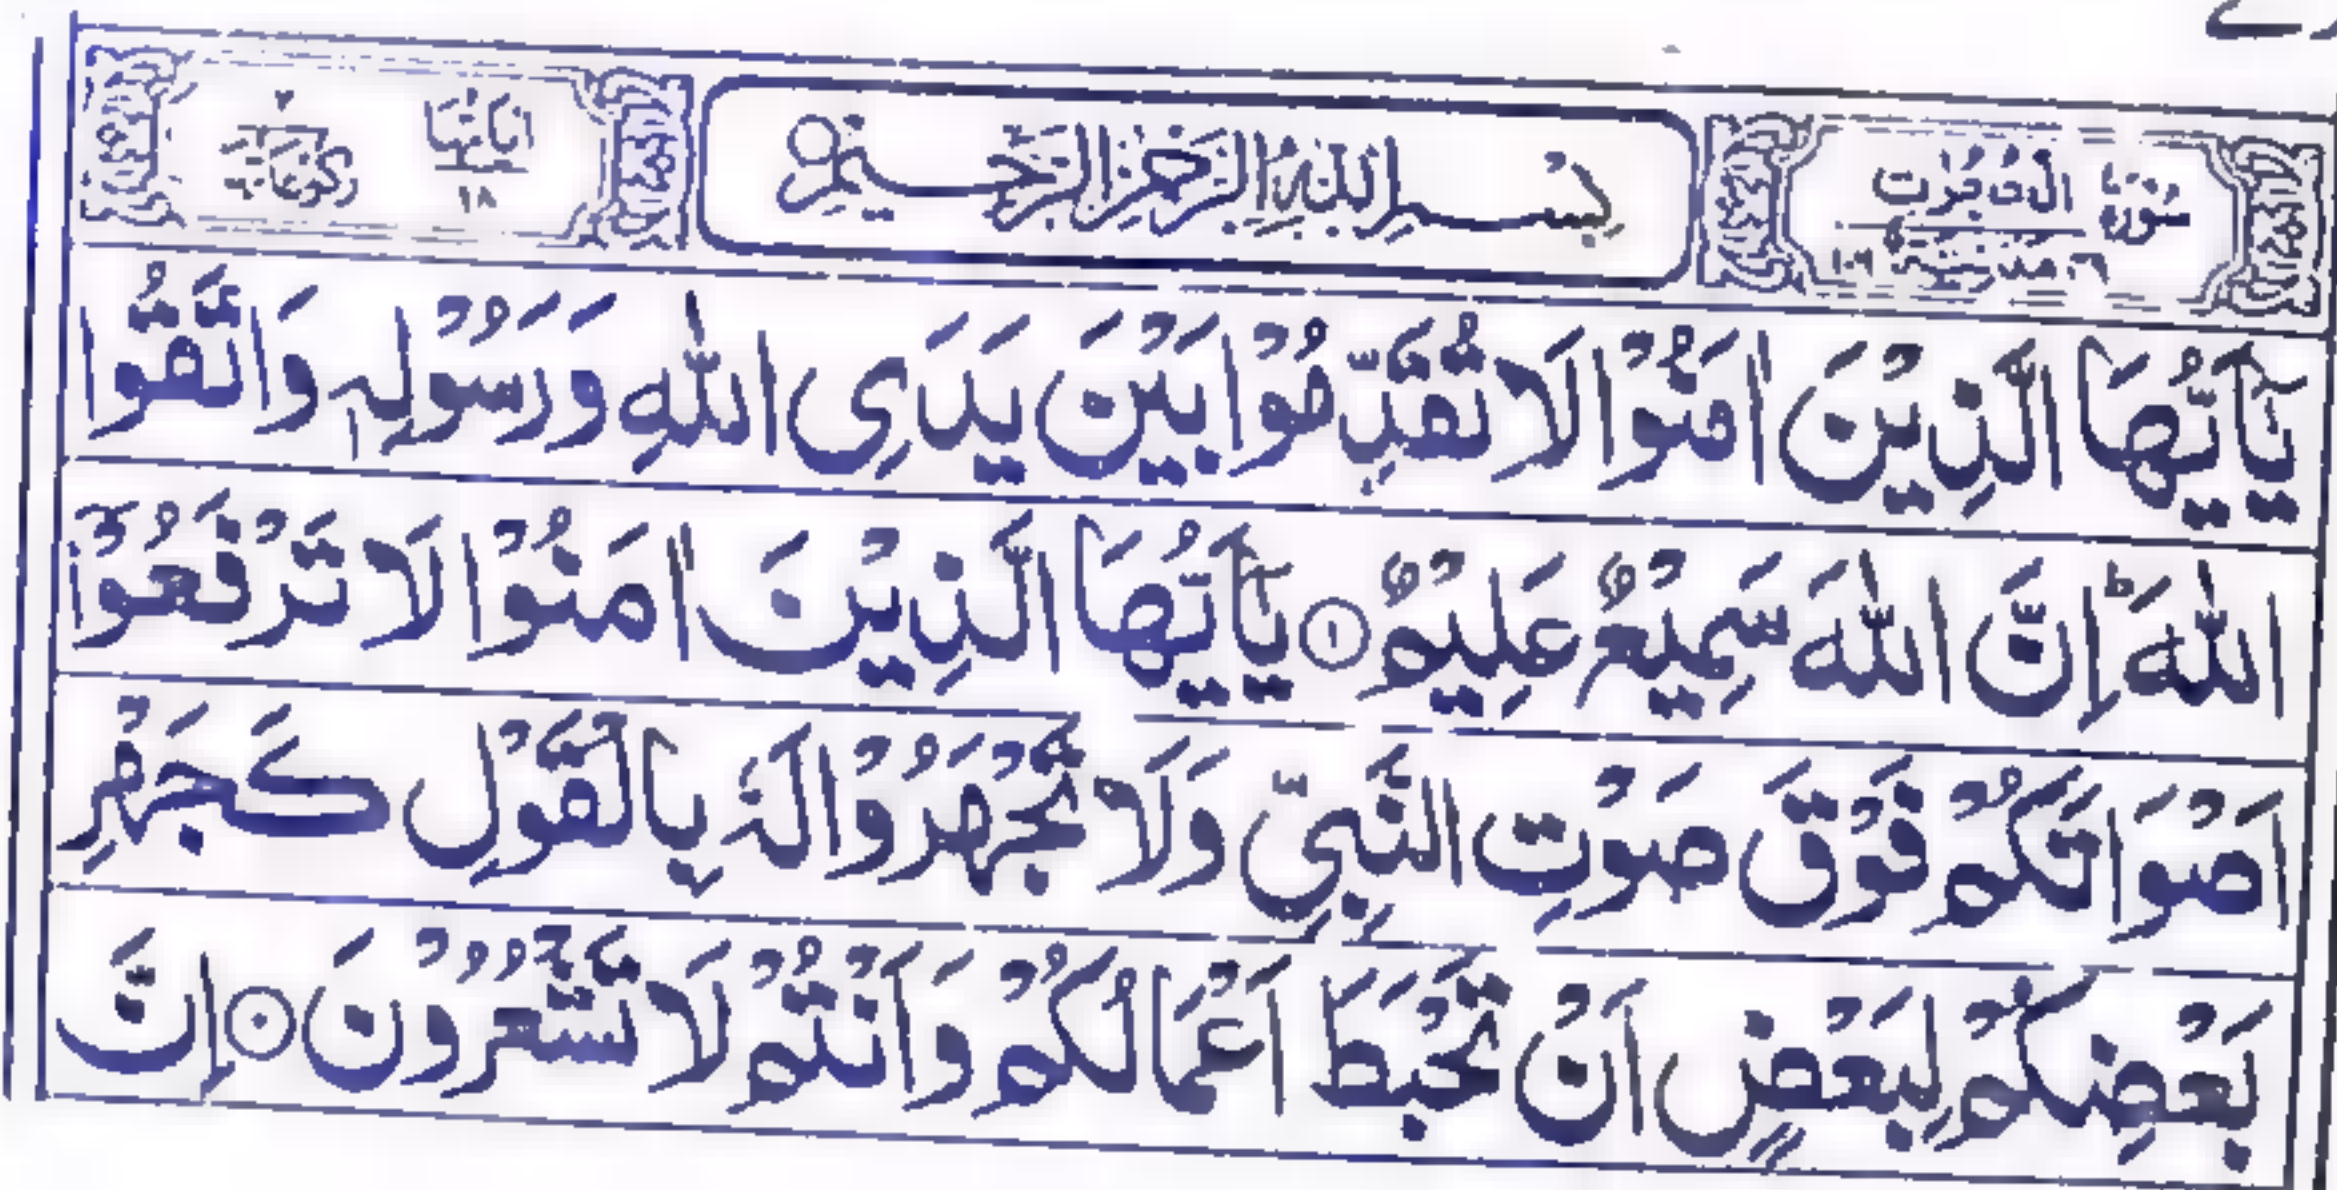 سُوْرَةُ الْحُجُرٰتِ مَدَنِيَّةٌ ١٠٦
بِسْمِ اللهِ الرَّحْمٰنِ الرَّحِيْمِ
اٰيَاتُهَا ١٨ رُكُوْعَاتُهَا ٢
يٰۤاَيُّهَا الَّذِيْنَ اٰمَنُوْا لَا تُقَدِّمُوْا بَيْنَ يَدَيِ اللّٰهِ وَرَسُوْلِهٖ وَاتَّقُوا
اللّٰهَ ؕ اِنَّ اللّٰهَ سَمِيْعٌ عَلِيْمٌ ۝١ يٰۤاَيُّهَا الَّذِيْنَ اٰمَنُوْا لَا تَرْفَعُوْۤا
اَصْوَاتَكُمْ فَوْقَ صَوْتِ النَّبِيِّ وَلَا تَجْهَرُوْا لَهٗ بِالْقَوْلِ كَجَهْرِ
بَعْضِكُمْ لِبَعْضٍ اَنْ تَحْبَطَ اَعْمَالُكُمْ وَاَنْتُمْ لَا تَشْعُرُوْنَ ۝ اِنَّ